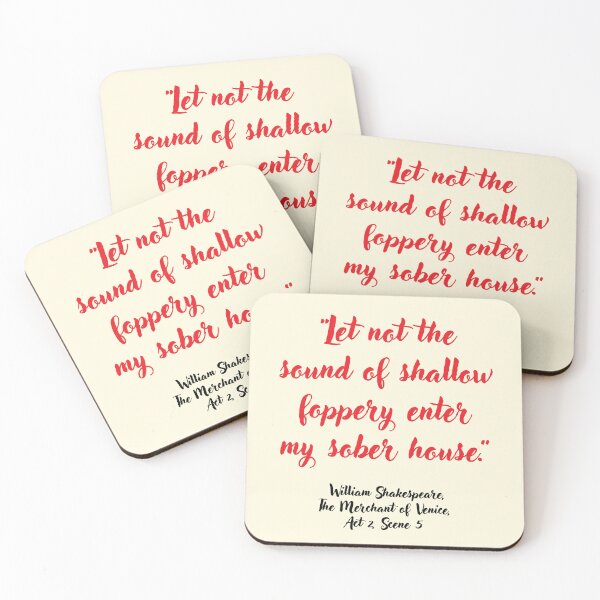 "Let not the
sound of shallow
foppery enter
house
"Let not the
sound of shallow
foppery enter
my sober house."
"Let not the
sound of shallow
foppery enter
my sober ho
"
William Shakes
The Merchant of
Act 2, Sc
"Let not the
sound of shallow
foppery enter
my sober house."
William Shakespeare,
The Merchant of Venice,
Act 2, Scene 5